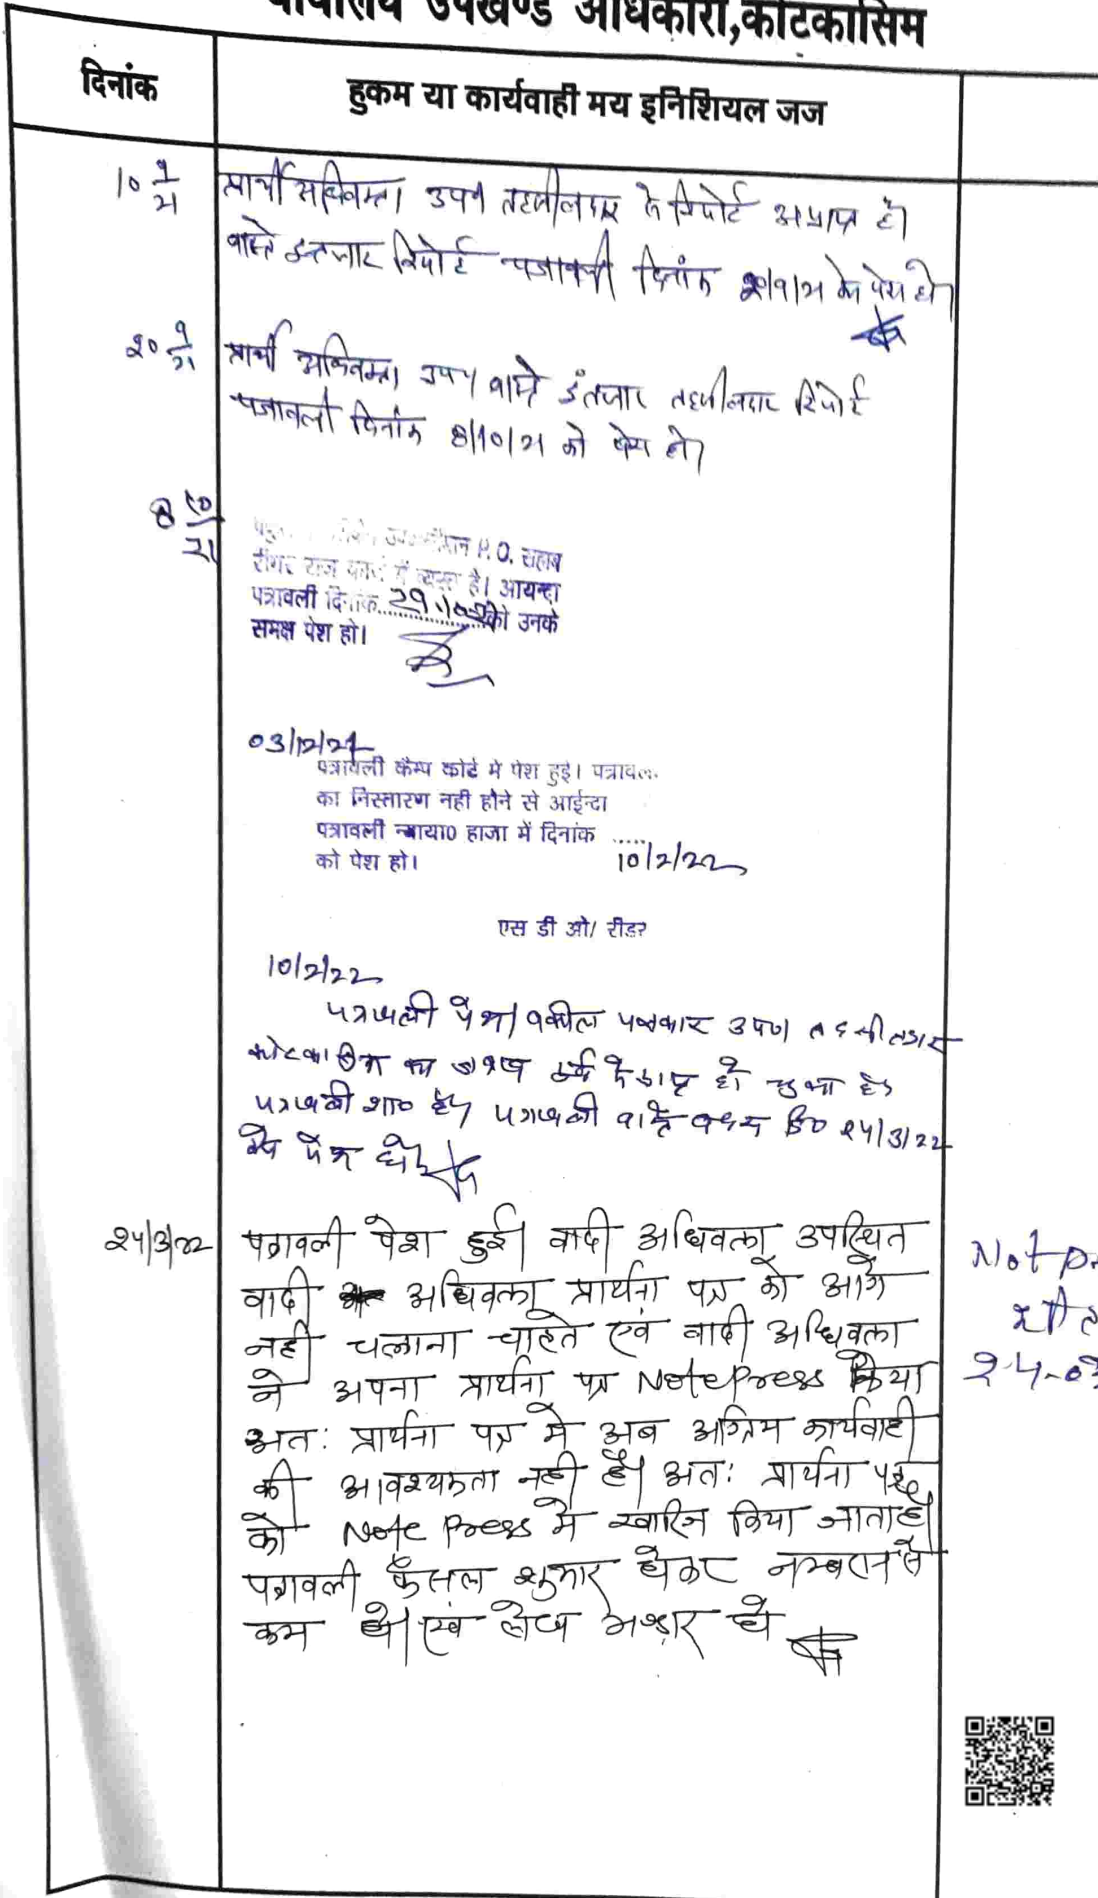 उपखण्ड अधिकारी,कोटकासिम
दिनांक
हुकम या कार्यवाही मय इनिशियल जज
10 9/21
प्रार्थी अधिवक्ता उप० तहसीलदार से रिपोर्ट अप्राप्त है।
वास्ते इन्तजार रिपोर्ट पत्रावली दिनांक 20/9/21 को पेश हो।
20 9/21
प्रार्थी अधिवक्ता उप० वास्ते इंतजार तहसीलदार रिपोर्ट
पत्रावली दिनांक 8/10/21 को पेश हो।
8 10/21
P.O. साहब
राज कार्य में व्यस्त है। आयन्दा
पत्रावली दिनांक 29.10 को उनके
समक्ष पेश हो।
03/12/21
पत्रावली कैम्प कोर्ट मे पेश हुई। पत्रावल
का निस्तारण नही होने से आईन्दा
पत्रावली न्याया0 हाजा में दिनांक .....
को पेश हो। 10/2/22
एस डी ओ/ रीडर
10/2/22
पत्रावली पेश। वकील पक्षकार उप० तहसीलदार
कोटकासिम का जवाब हो चुका है।
पत्रावली है। पत्रावली वास्ते बहस दि० 24/3/22
को पेश हो।
24/3/22
पत्रावली पेश हुई। वादी अधिवक्ता उपस्थित
वादी अधिवक्ता प्रार्थना पत्र को आगे
नही चलाना चाहते एवं वादी अधिवक्ता
ने अपना प्रार्थना पत्र Note Press किया
अतः प्रार्थना पत्र मे अब अग्रिम कार्यवाही
की आवश्यकता नही है। अतः प्रार्थना पत्र
को Note Press मे खारिज किया जाता है।
पत्रावली फैसल शुमार होकर नम्बरान से
कम हो। एवं लेख भण्डार हो
Not p
24-03